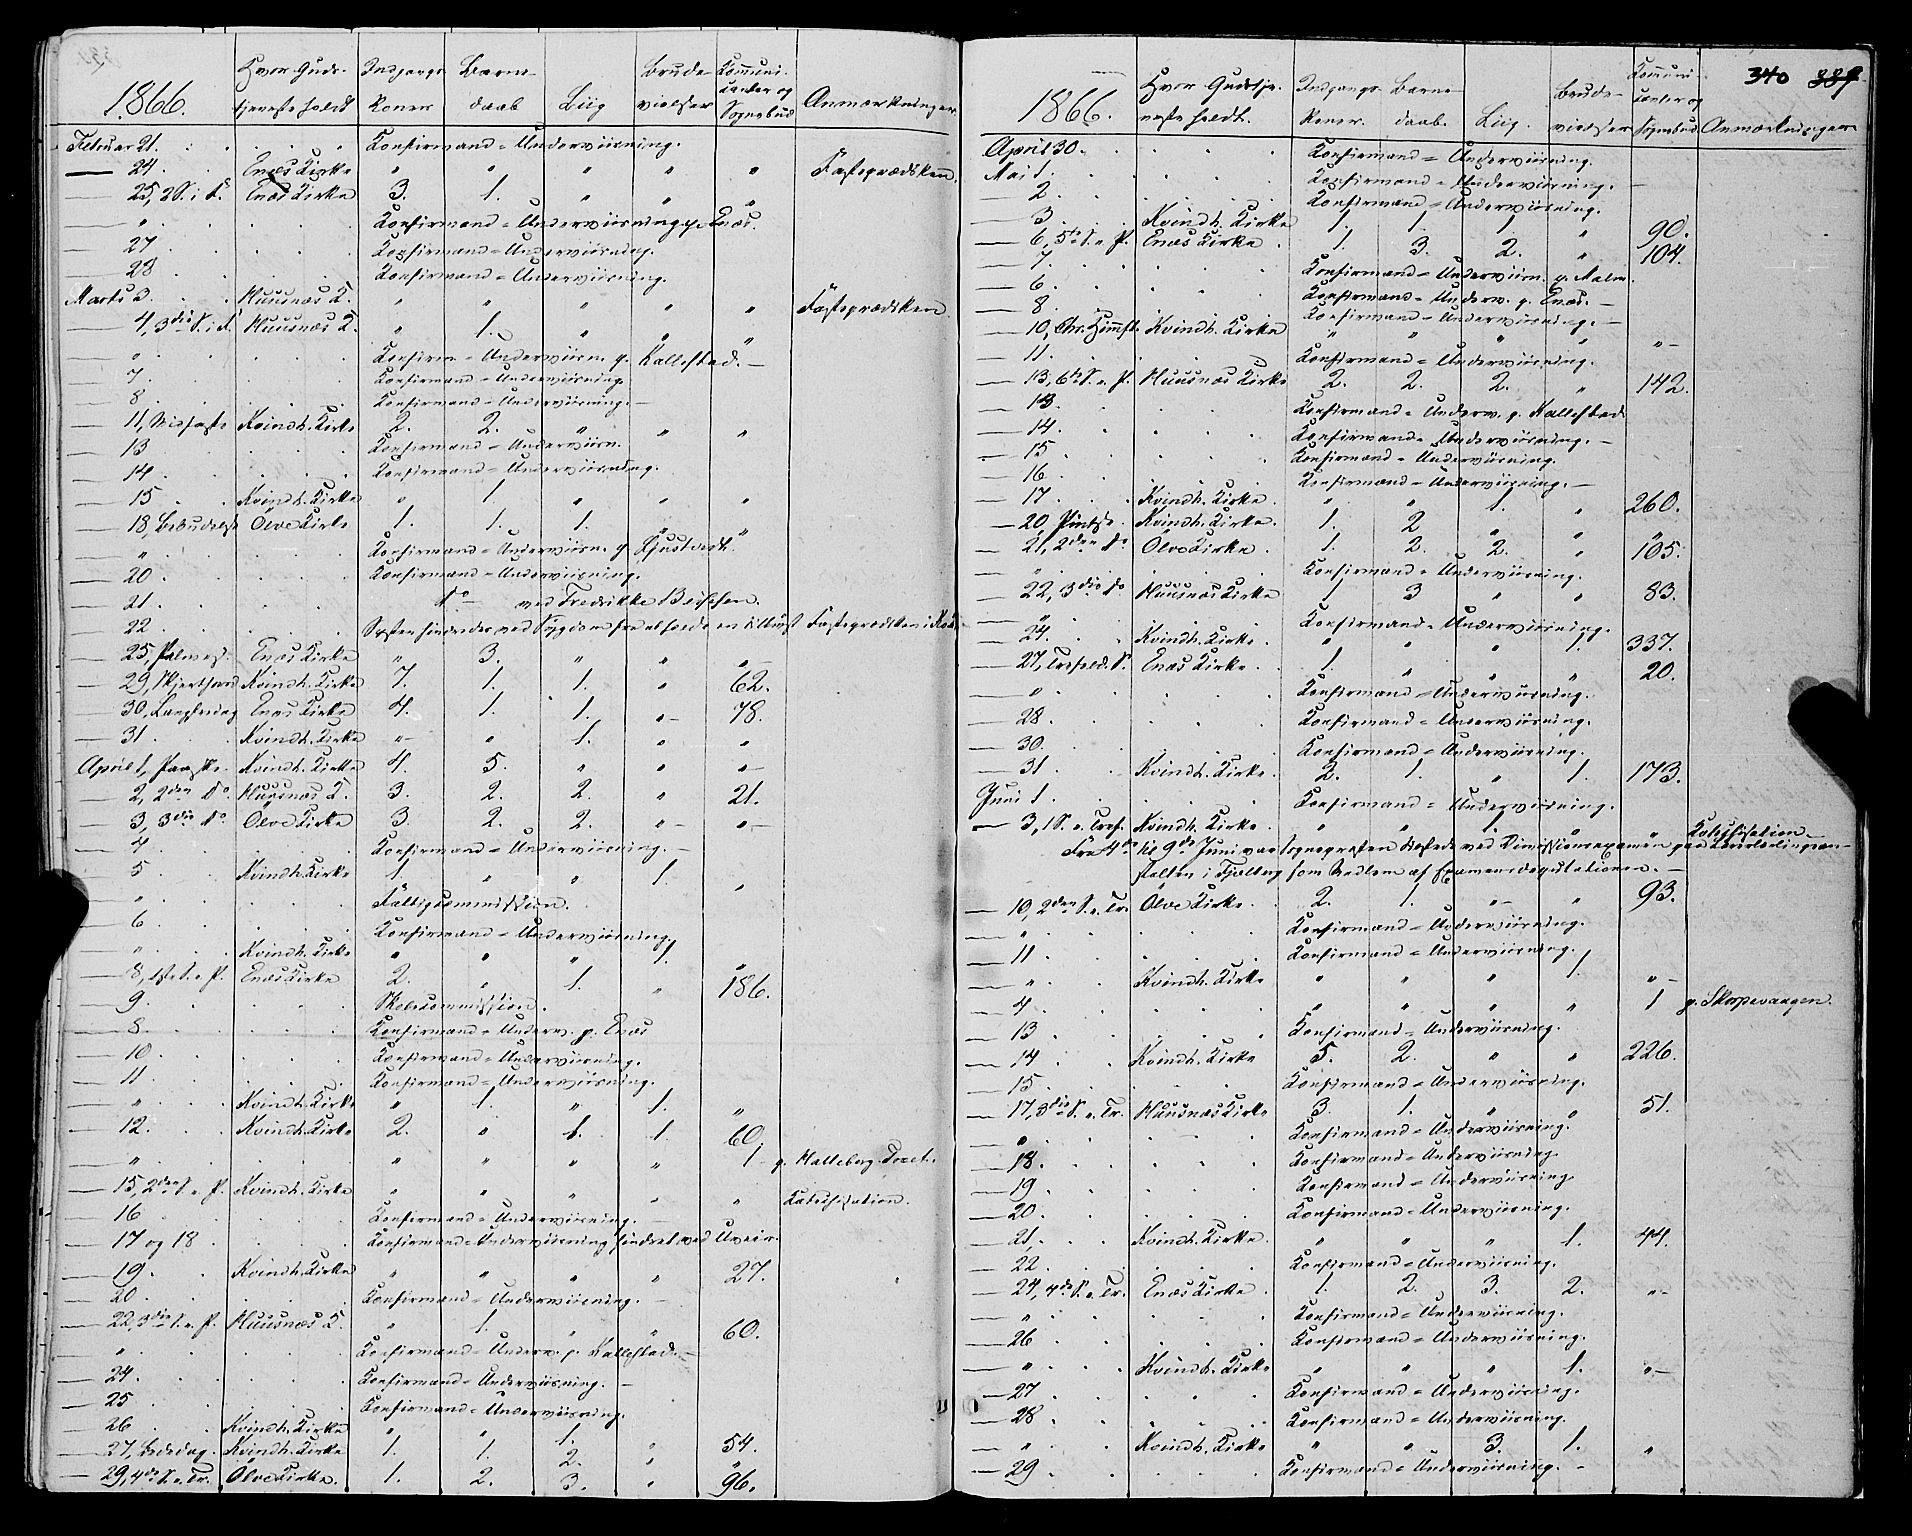 1866.
Hvor Guds-
tjeneste holdt
Indgangs
Koner
Barne
daab
Liig
Brude-
vielser
Kommuni-
canter og
Sognebud
Anmærkninger.
Februar 21. Konfirmand-Underviisning.
24. Enæs Kirke " " " " " Fasteprædiken.
25, 2 S. i F. Enæs Kirke 3. 1. " " "
" Konfirmand-Underviisning p. Enæs.
27 Konfirmand-Underviisning.
28 Konfirmand-Underviisning.
Marts 3. Huusnæs K. " " " " " Fasteprædiken
4, 3die S. i F. Huusnæs K. " 1. " " "
" Konfirm.-Underviisn. p. Kallestad.
7. Konfirmand-Underviisning.
8. Konfirmand-Underviisning.
11, Midfaste Kvindh. Kirke 2. 2. " " "
13 Konfirmand-Underviisn.
14. Konfirmand-Underviisning.
15 Kvindh. Kirke " 1. " " "
18, Bebudelse Ölve Kirke 1. 1. 1. " "
" Konfirmand-Underviisn. p.
20 Konfirmand-Underviisning.
21. do med Fredrikke
22 Sygdom fra at holde en Fasteprædiken i
25, Palmes. Enæs Kirke " 3. " " "
29, Skjertorsd Kvindh. Kirke 7. 1. 1. " 62.
30, Langfredag Enæs Kirke 4. 1. 1. " 78.
31 Kvindh. Kirke " " 1. " "
April 1, Paaske Kvindh. Kirke 4. 5. " " "
2, 2den do Huusnæs K. 3. 2. 2. " 21.
3, 3die do Ölve Kirke 3. 2. 2. " "
4 Konfirmand-Underviisning.
5 Kvindh. Kirke 1. " " 1. "
" Fattigcommission.
6 Konfirmand-Underviisning.
" Kvindh. Kirke " " " 1. "
8, 1ste S. e. P. Enæs Kirke 2. " 1. " 186.
9. Skolecommission.
8. Konfirmand-Underv. p. Enæs
10. Konfirmand-Underviisning.
11. Konfirmand-Underviisning.
" Kvindh. Kirke " 1. " 1. "
12. Kvindh. Kirke 2. " 1. 1. 60.
" " " " " 1 p. Malleberg
15, 2den S. e. P. Kvindh. Kirke " " " " " Katechisation.
16 Konfirmand-Underviisning.
17 og 18 Konfirmand-Underviisning hindret ved Uveir.
19 Kvindh. Kirke " " " " 27.
20 Konfirmand-Underviisning.
22, 3die S. e. P. Huusnæs K. " 1. " " 60.
" Konfirmand-Underv. p. Kallestad.
24 Konfirmand-Underviisning.
25 Konfirmand-Underviisning.
26 Kvindh. Kirke " " 1.
27, Bededag Kvindh. Kirke 1. 1. 2. " 54.
29, 4de S. e. Tr. Ölve Kirke. 1. 2. 3. " 96.
340 339
1866.
Hvor Gudstje-
neste holdt.
Indgangs
Koner.
Barne-
daab.
Liig.
Brude-
vielser
Kommuni
canter og
Sognebud
Anmærkninger
April 30. Konfirmand-Underviisning.
Mai 1. Konfirmand-Underviisning.
2. Konfirmand-Underviisning.
3. Kvindh. Kirke 1. 1. 1. " 90.
6, 5te S. e. P. Enæs Kirke 1. 3. 2. " 104.
7. Konfirmand-Underviisn. p. Malm.
6. Konfirmand-Underv. p. Enæs.
8. Konfirmand-Underviisning.
10, Chr. Himmelf. Kvindh. Kirke " " " " "
11. Konfirmand-Underviisning.
13, 6te S. e. P. Huusnæs Kirke 2. 2. 2. " 142.
13. Konfirmand-Underv. p. Kallestad
14. Konfirmand-Underviisning.
15 Konfirmand-Underviisning.
16 Konfirmand-Underviisning.
17 Kvindh. Kirke " " 1. " 260.
20, Pintse Kvindh. Kirke 1. 2 " " "
21, 2den do Ölve Kirke 1. 2. 2. " 105.
" Konfirmand-Underviisning.
22, 3die do Huusnæs Kirke 1 3 " " 83.
" Konfirmand-Underviisning.
24. Kvindh. Kirke " " " 1. 337.
27, Trefold. S. Enæs Kirke 1. " " " 20.
" Konfirmand-Underviisning.
28 Konfirmand-Underviisning.
30. Konfirmand-Underviisning.
31 Kvindh. Kirke 2. 1. " 1. 173.
Juni 1. Konfirmand-Underviisning.
3, 1 S. e. Tref. Kvindh. Kirke " " 1. " " Katechisation
Fra 4de til 9de Juni var Sognepræsten ved Dimissionsexamen paa
stalten i som Medlem af Examensdeputationen.
10, 2den S. e. Tr. Ölve Kirke 2. 1. " " 93.
" Konfirmand-Underviisning.
11 Konfirmand-Underviisning.
" Kvindh. Kirke " " " 1. "
4 " " " " 1 p. Skorpevaagen.
13 Konfirmand-Underviisning.
14 Kvindh. Kirke 5. 2. " " 226.
15 Konfirmand-Underviisning.
17, 3die S. e. Tr. Huusnæs Kirke 3. 1. " " 51.
" Konfirmand-Underviisning.
18. Konfirmand-Underviisning.
19 Konfirmand-Underviisning.
20. Konfirmand-Underviisning.
21, Kvindh. Kirke " " " 1. 44.
22 Konfirmand-Underviisning.
24, 4de S. e. Tr. Enæs Kirke 1. 2. 3. 2. "
" Konfirmand-Underviisning.
26 Konfirmand-Underviisning.
" Kvindh. Kirke " " " 1. "
27 Konfirmand-Underviisning.
28 Konfirmand-Underviisning.
" Kvindh. Kirke " " 3. 1. "
29 Konfirmand-Underviisning.